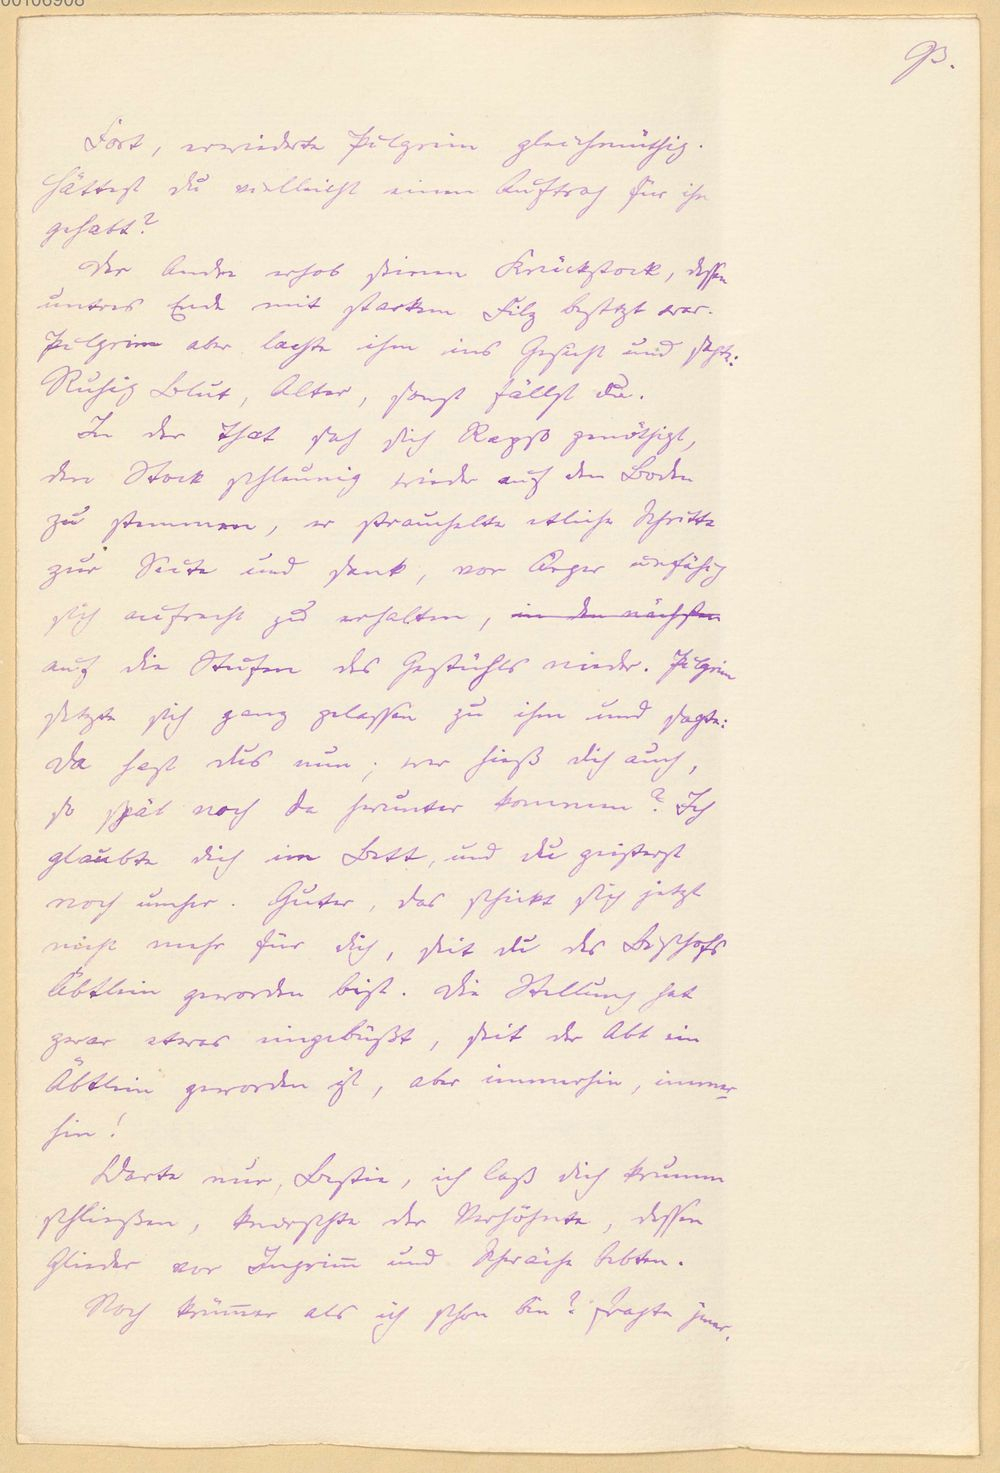 00106908
93.
Fort, erwiederte Pilgrim gleichmüthig.
Hättest du vielleicht einen Auftrag für ihn
gehabt?
Der Andre erhob seinen Krückstock, dessen
untres Ende mit starkem Filz besetzt war.
Pilgrim aber lachte ihm ins Gesicht und sagte:
Ruhig Blut, Alter, sonst fällst du.
In der That sah sich Rapso genöthigt,
den Stock schleunig wieder auf den Boden
zu stemmen, er strauchelte etliche Schritte
zur Seite und sank, vor Ärger unfähig
sich aufrecht zu erhalten, in den nächsten
auf die Stufen des Gestühls nieder. Pilgrim
setzte sich ganz gelassen zu ihm und sagte:
Da hast dus nun; wer hieß dich auch,
so spät noch da herunter kommen? Ich
glaubte dich im Bett, und du geisterst
noch umher. Guter, das schickt sich jetzt
nicht mehr für dich, seit du des Bischofs
Äbtlein geworden bist. Die Stellung hat
zwar etwas eingebüßt, seit der Abt ein
Äbtlein geworden ist, aber immerhin, immer-
hin!
Warte nur, Bestie, ich laß dich krumm
schließen, knirschte der Verhöhnte, dessen
Glieder vor Ingrim̅ und Schwäche bebten.
Noch krüm̅er als ich schon bin? fragte jener.